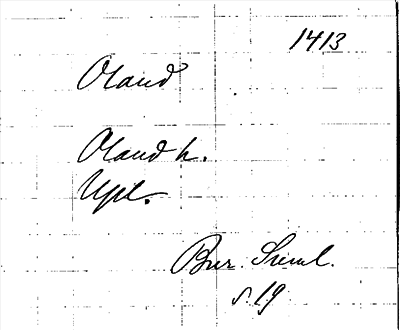 1413
Oland
Oland h.
Upl.
Bur. Suml.
s. 19